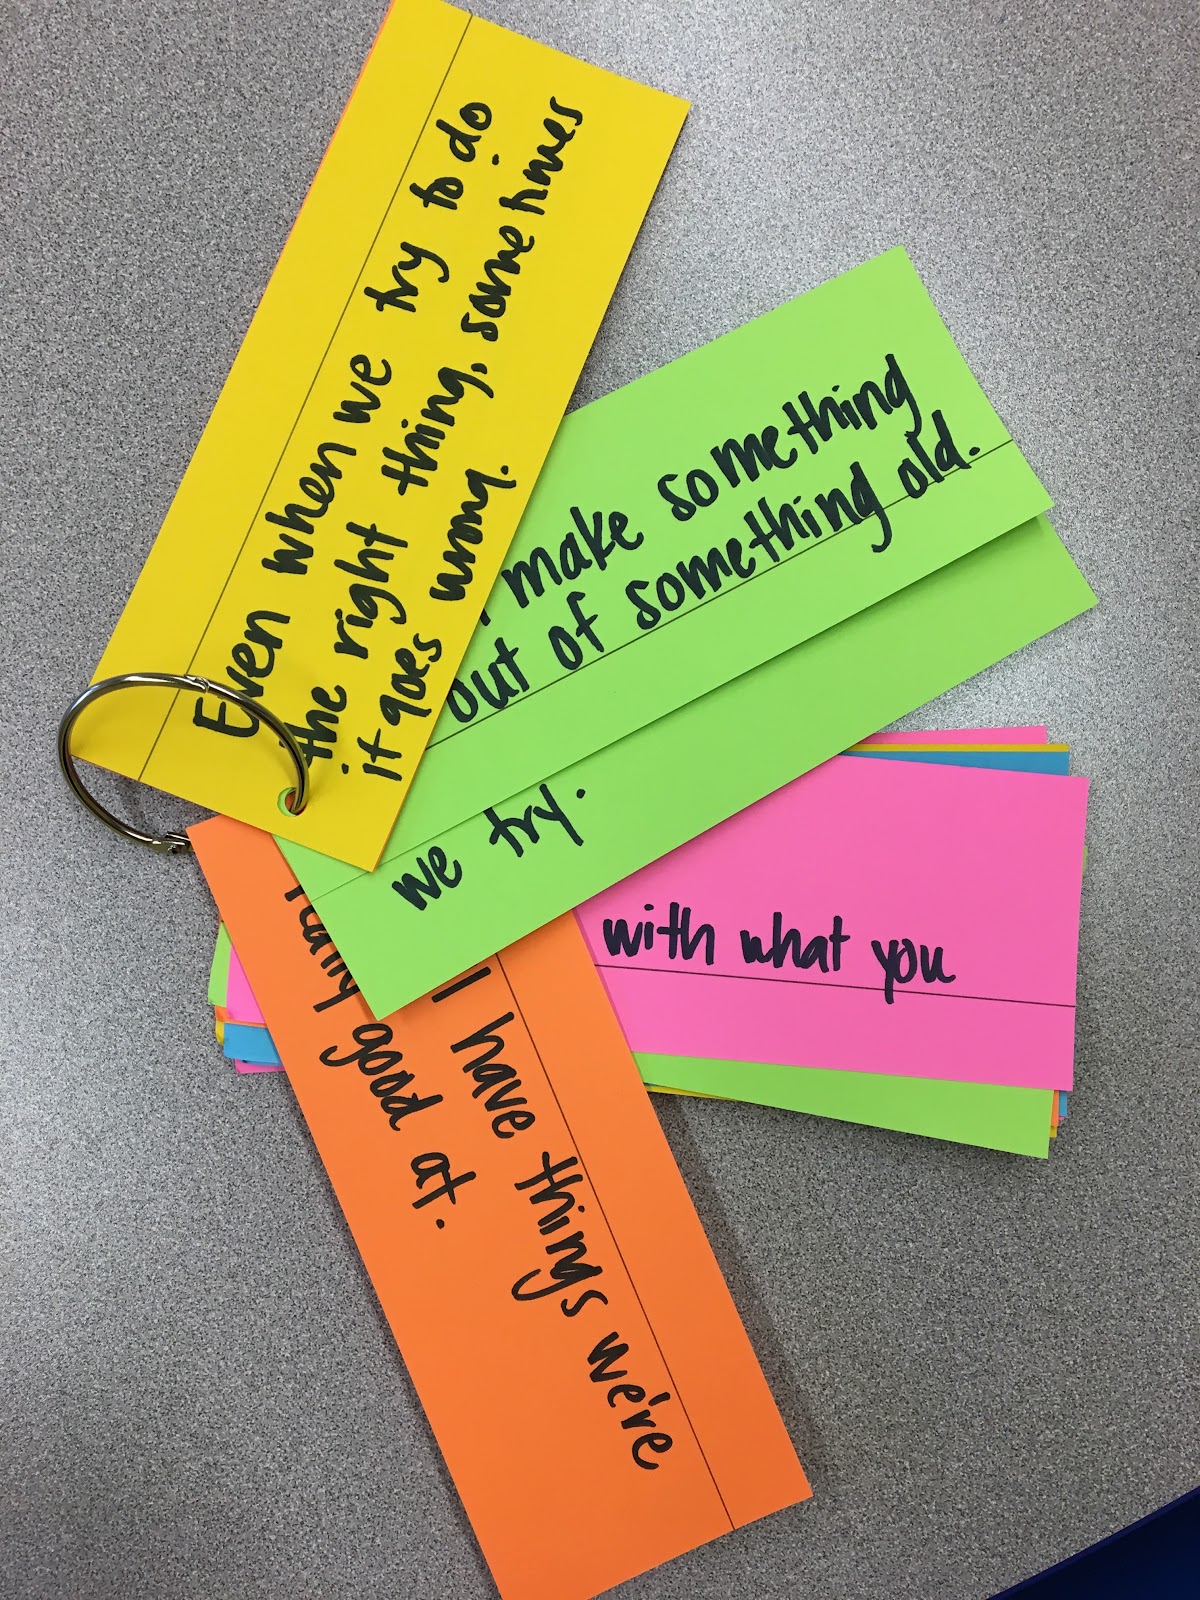 Even when we try to do
the right thing, sometimes
it goes wrong.
make something
out of something old.
we try.
with what you
I have things we're
really good at.